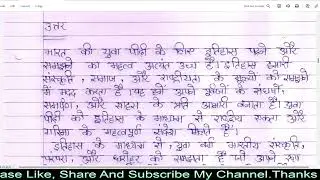 उत्तर
भारत की युवा पीढ़ी के लिए इतिहास पढ़ने और
समझने का महत्व अत्यंत उच्च है। इतिहास हमारी
संस्कृति, समाज, और राष्ट्रीयता के मूल्यों को समझने
में मदद करता है। यह हमें अपने पूर्वजों के संघर्षों,
समर्पण, और साहस के प्रति आभारी बनाता है। युवा
पीढ़ी को इतिहास के माध्यम से राष्ट्रीय एकता और
गरिमा के महत्वपूर्ण संदेश मिलते हैं।
इतिहास के माध्यम से, युवा वर्ग भारतीय संस्कृति,
परंपरा, और धरोहर को समझता है जो आपने
ase Like, Share And Subscribe My Channel.Thanks